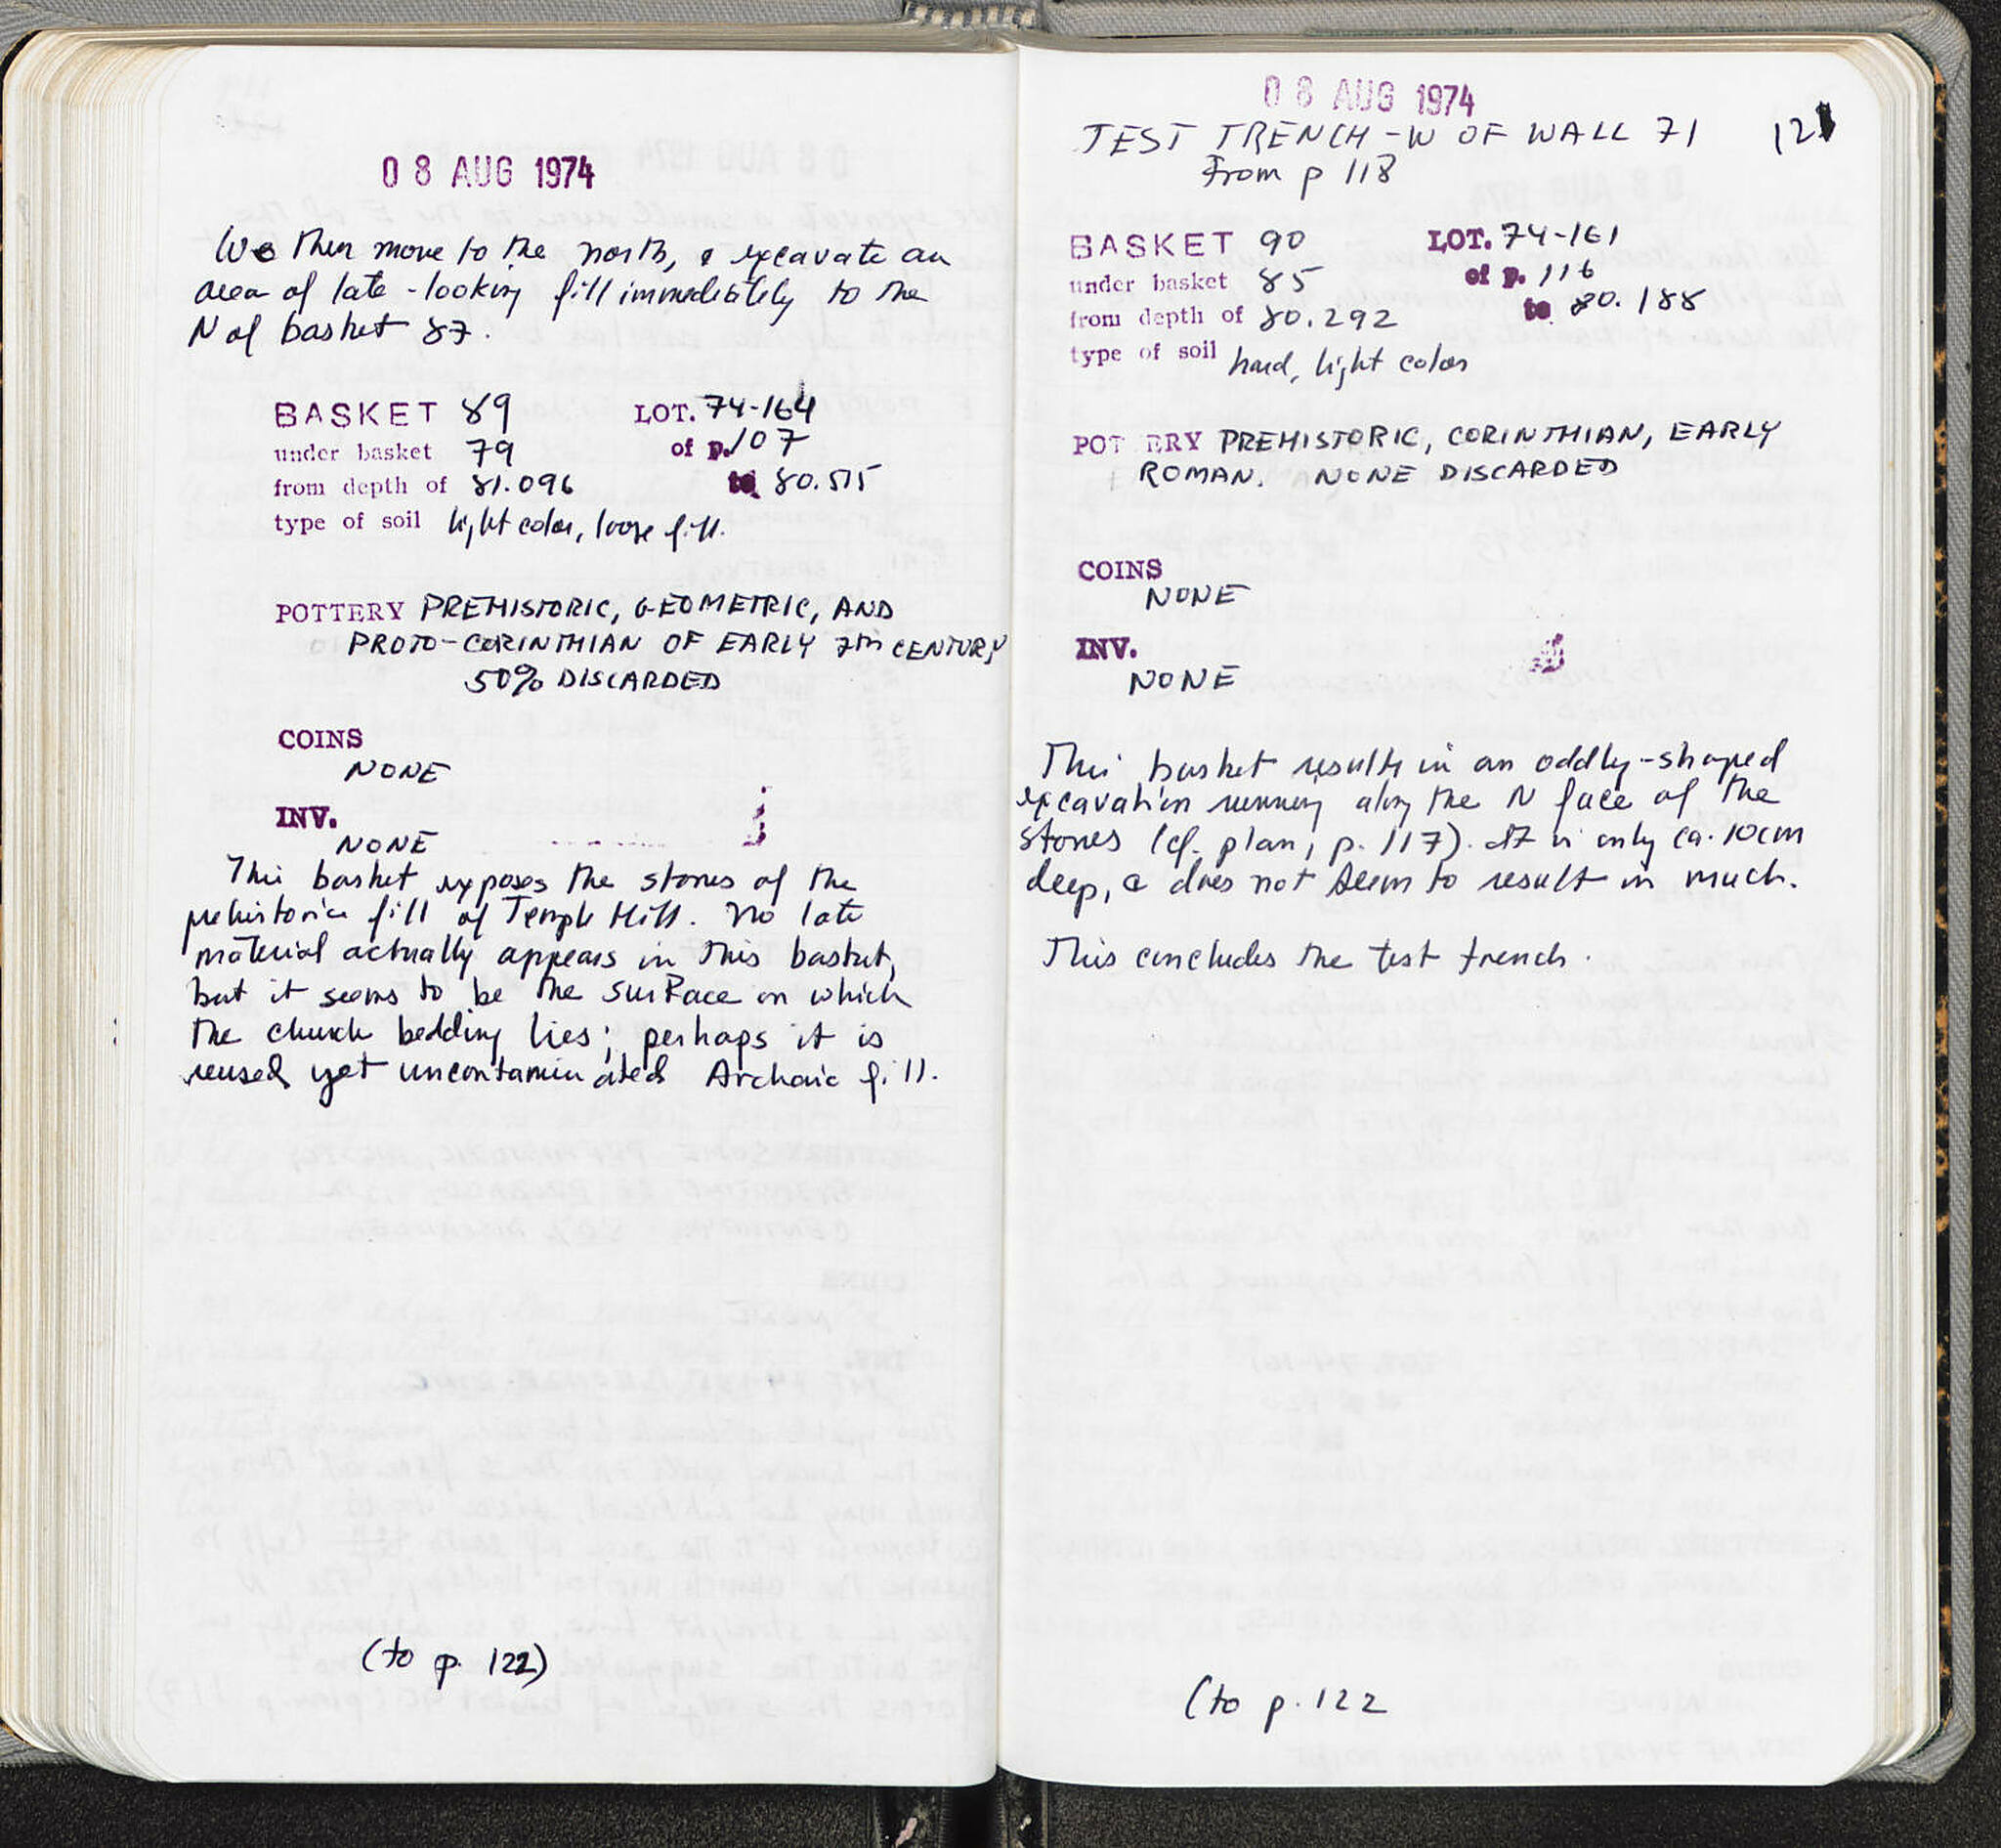 08 AUG 1974
We then move to the north, & excavate an
area of late-looking fill immediately to the
N of basket 87.
BASKET 89 LOT. 74-164
under basket 79 of p. 107
from depth of 81.096 to 80.515
type of soil light color, loose fill.
POTTERY PREHISTORIC, GEOMETRIC, AND
PROTO-CORINTHIAN OF EARLY 7TH CENTURY
50% DISCARDED
COINS
NONE
INV.
NONE
This basket exposes the stones of the
prehistoric fill of Temple Hill. No late
material actually appears in this basket,
but it seems to be the surface on which
the church bedding lies; perhaps it is
reused yet uncontaminated Archaic fill.
(to p. 122)
08 AUG 1974
TEST TRENCH - W OF WALL 71 121
From p 118
BASKET 90 LOT. 74-161
under basket 85 of p. 116
from depth of 80.292 to 80.188
type of soil hard, light color
POT ERY PREHISTORIC, CORINTHIAN, EARLY
ROMAN. NONE DISCARDED
COINS
NONE
INV.
NONE
This basket results in an oddly-shaped
excavation running along the N face of the
stones (cf. plan, p. 117). It is only ca. 10cm
deep, & does not seem to result in much.
This concludes the test trench.
(to p. 122